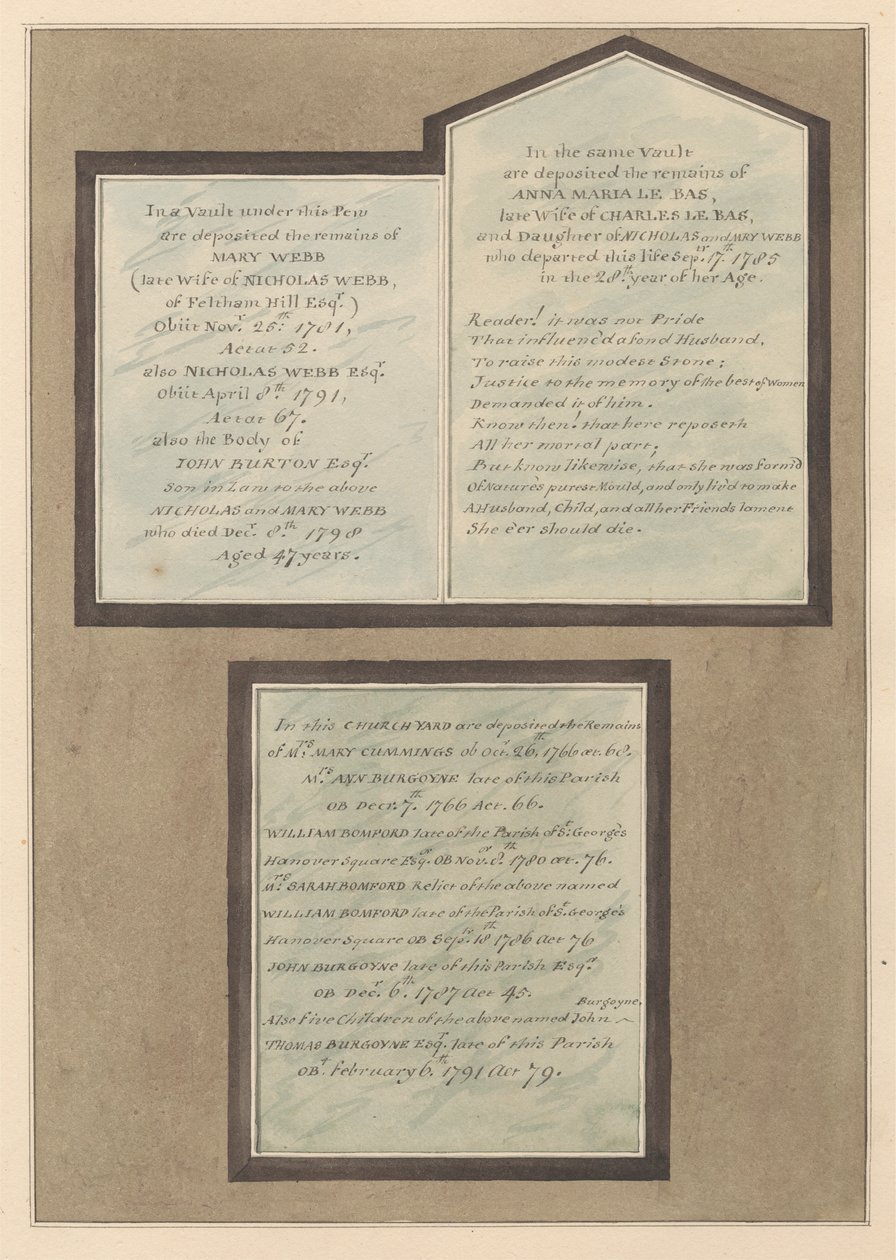 In a Vault under this Pew
are deposited the remains of
MARY WEBB
(late Wife of NICHOLAS WEBB,
of Feltham Hill Esqr.)
Obiit Novr. 25th: 1781,
Aetat 52.
also NICHOLAS WEBB Esqr.
Obiit April 8th. 1791,
Aetat 67.
also the Body of
JOHN BURTON Esqr.
Son in Law to the above
NICHOLAS and MARY WEBB
who died Decr. 8.th 1798
Aged 47 years.
In the same Vault
are deposited the remains of
ANNA MARIA LE BAS,
late Wife of CHARLES LE BAS,
and Daughter of NICHOLAS and MRY WEBB
who departed this life Septr. 17.th 1785
in the 28.th year of her Age.
Reader! it was not Pride
That influenc'd a fond Husband,
To raise this modest Stone;
Justice to the memory of the best of Women
Demanded it of him.
Know then! that here reposeth
All her mortal part;
But know likewise, that she was form'd
Of Nature's purest Mould, and only liv'd to make
A Husband, Child, and all her Friends lament
She e'er should die.
In this CHURCH YARD are deposited the Remains
of Mrs. MARY CUMMINGS ob Octr. 26,th 1766 æt. 68.
Mrs. ANN BURGOYNE late of this Parish
OB Decr. 7.th 1766 Aet. 66.
WILLIAM BOMFORD late of the Parish of St. George's
Hanover Square Esqr. OB Novr. 8.th 1780 æt. 76.
Mrs. SARAH BOMFORD Relict of the above named
WILLIAM BOMFORD late of the Parish of St. George's
Hanover Square OB Septr. 18th 1786 Aet 76
JOHN BURGOYNE late of this Parish Esqr.
OB Decr. 6.th 1787 Aet 45.
Also five Children of the above named John Burgoyne,
THOMAS BURGOYNE Esqr. late of this Parish
OBt. february 6.th 1791 Aet 79.